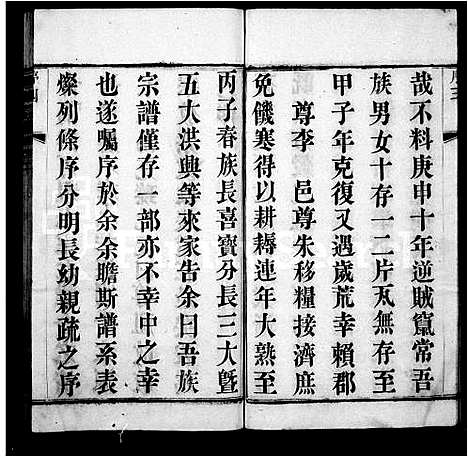 哉不料庚申十年逆賊竄常吾
族男女十存一二片瓦無存至
甲子年克復又遇歲荒幸賴郡
尊李　邑尊朱移糧接濟庶
免饑寒得以耕耨連年大熟至
丙子春族長喜寶分長三大曁
五大洪興等來家告余曰吾族
宗譜僅存一部亦不幸中之幸
也遂囑序於余余瞻斯譜系表
燦列條序分明長幼親疏之序